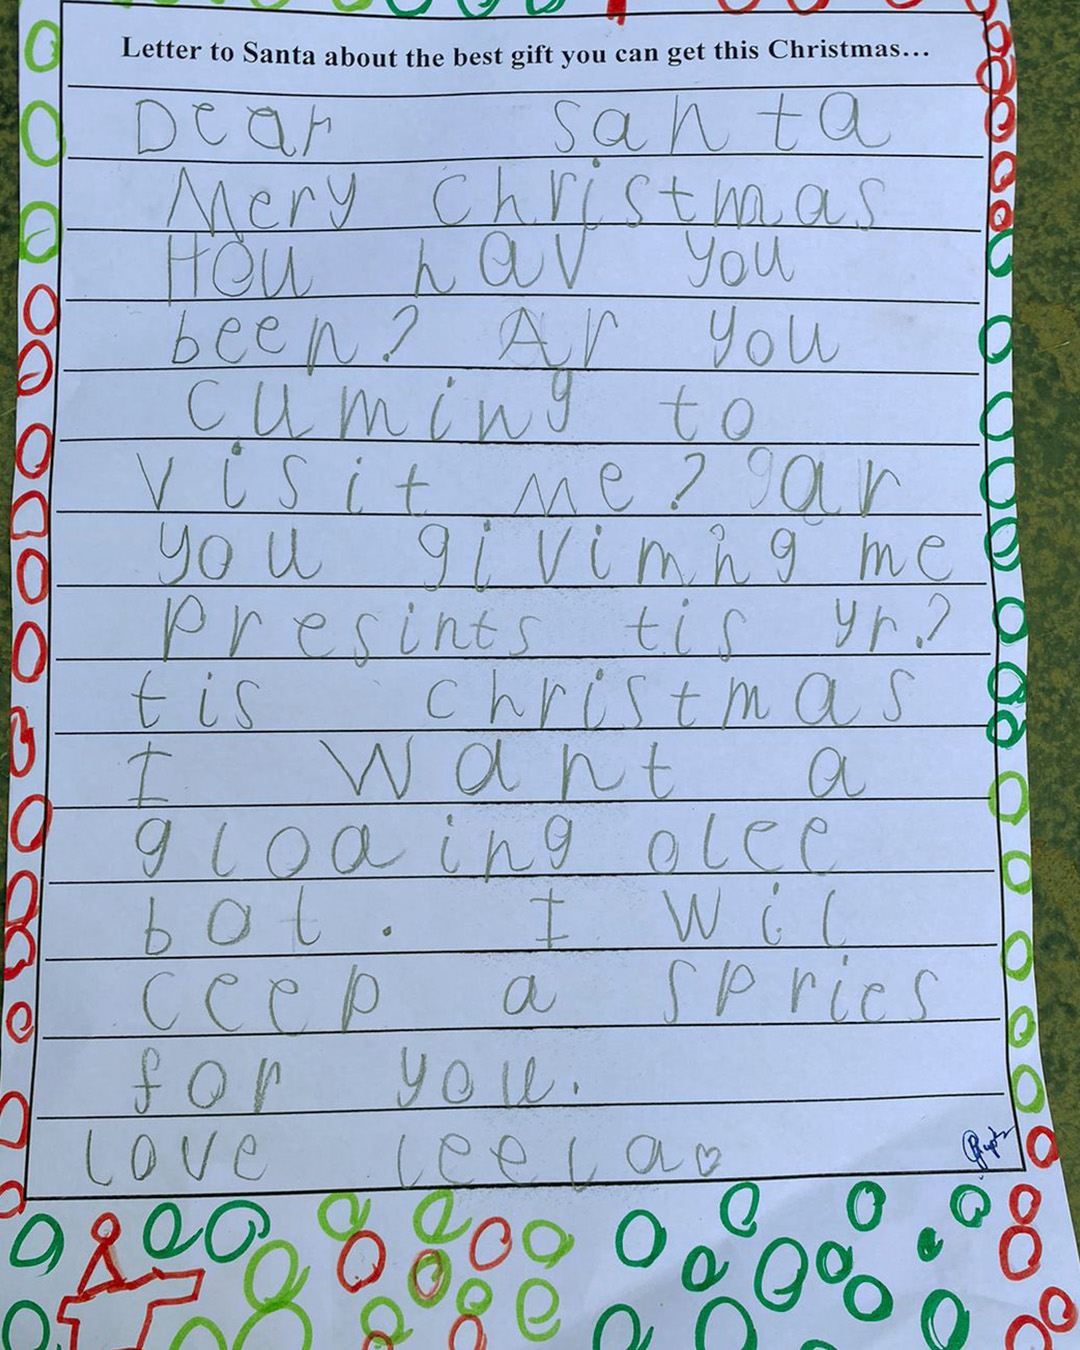 Letter to Santa about the best gift you can get this Christmas...
Dear santa
Mery christmas
Hou hav you
been? Ar you
cuming to
visit me? ar
you givimng me
presints tis yr.?
tis christmas
I want a
gloaing olee
bol. I wil
ceep a spries
for you.
love leela